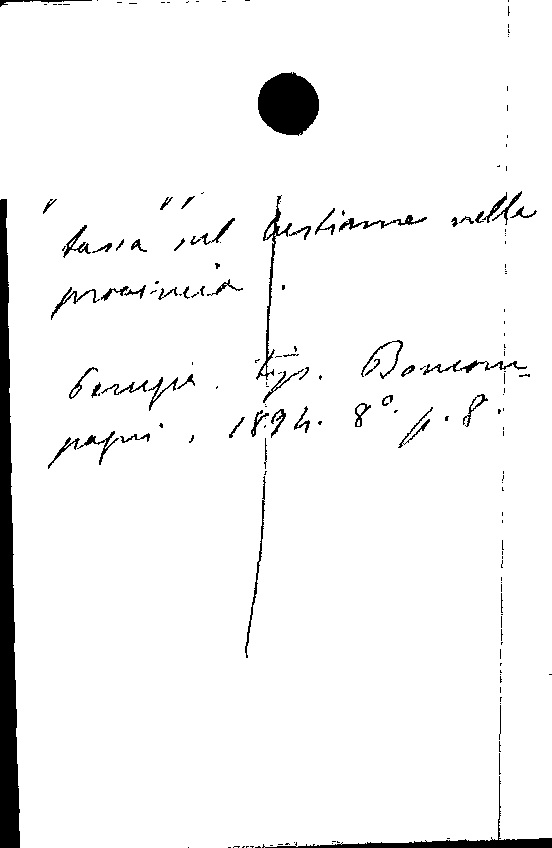 " " "
tassa sul bestiame nella
provincia.
Perugia. tip. Boncom-
pagni, 1894. 8°. p. 8.